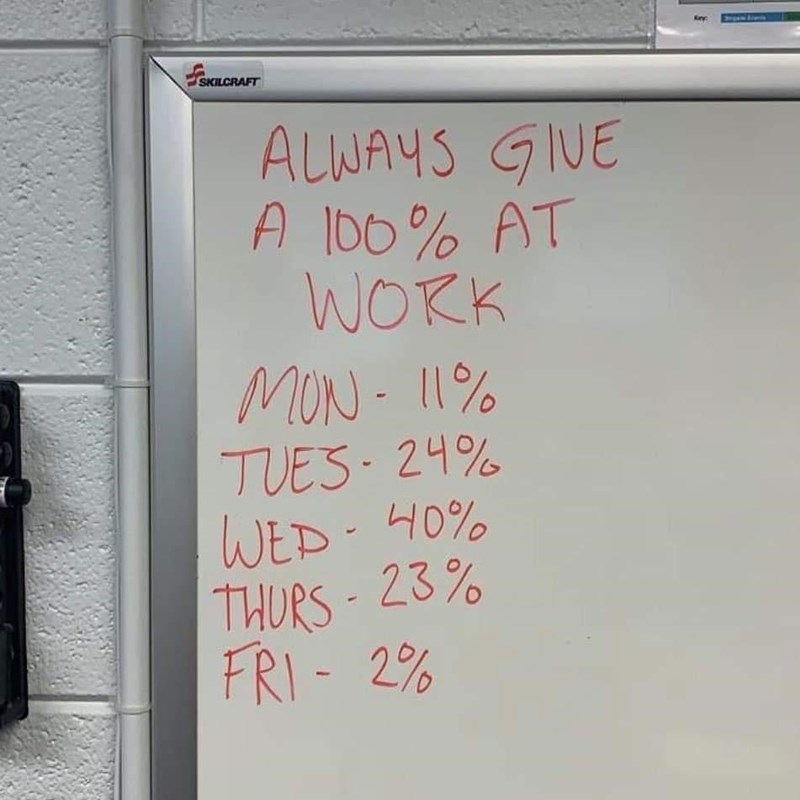 Key:
SKILCRAFT
ALWAYS GIVE
A 100% AT
WORK
MON - 11%
TUES - 24%
WED - 40%
THURS - 23%
FRI - 2%